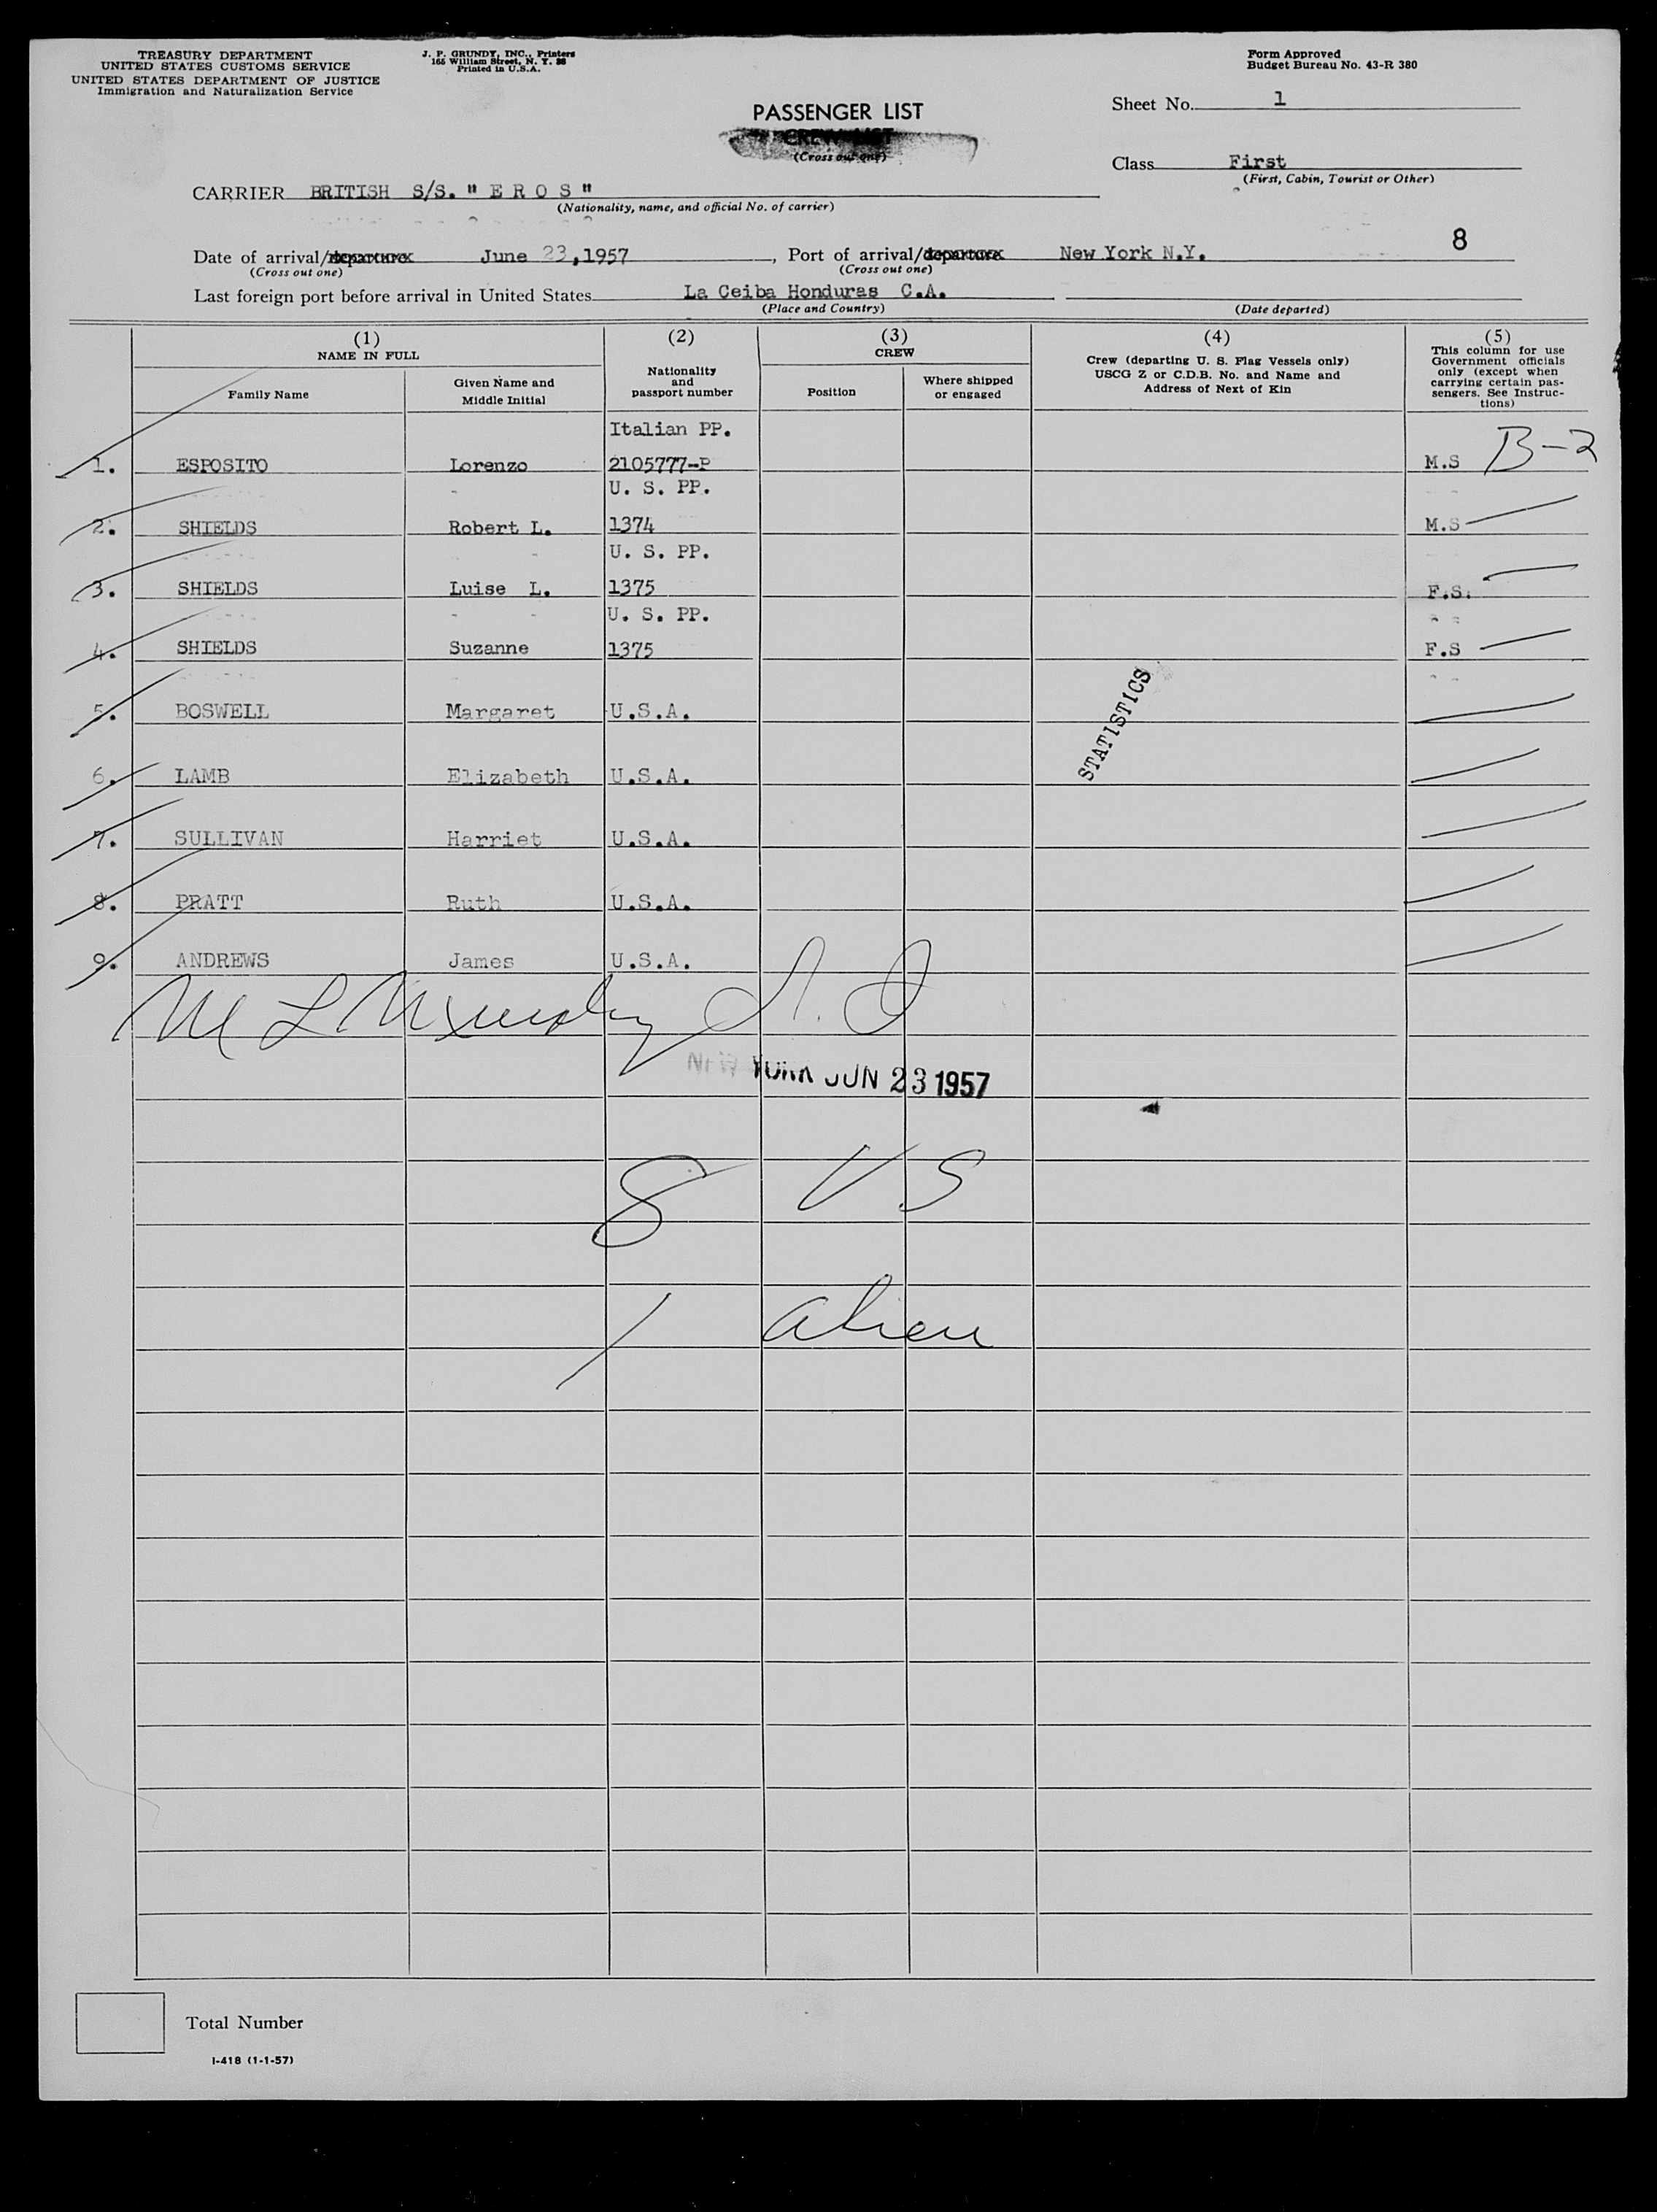 TREASURY DEPARTMENT
UNITED STATES CUSTOMS SERVICE
UNITED STATES DEPARTMENT OF JUSTICE
Immigration and Naturalization Service
J. P. GRUNDY, INC., Printers
165 William Street, N. Y. 38
Printed in U.S.A.
Form Approved
Budget Bureau No. 43-R 380
PASSENGER LIST
CREW LIST
(Cross out one)
Sheet No. 1
Class First
(First, Cabin, Tourist or Other)
CARRIER BRITISH S/S. " E R O S "
(Nationality, name, and official No. of carrier)
8
Date of arrival/departure June 23,1957, Port of arrival/departure New York N.Y.
(Cross out one) (Cross out one)
Last foreign port before arrival in United States La Ceiba Honduras C.A.
(Place and Country) (Date departed)
(1) (2) (3) (4) (5)
NAME IN FULL
Family Name
Given Name and
Middle Initial
Nationality
and
passport number
CREW
Position
Where shipped
or engaged
Crew (departing U. S. Flag Vessels only)
USCG Z or C.D.B. No. and Name and
Address of Next of Kin
This column for use
Government officials
only (except when
carrying certain pas-
sengers. See Instruc-
tions)
Italian PP.
1. ESPOSITO Lorenzo 2105777-P M.S B-2
U. S. PP.
2. SHIELDS Robert L. 1374 M.S
U. S. PP.
3. SHIELDS Luise L. 1375 F.S.
U. S. PP.
4. SHIELDS Suzanne 1375 F.S
STATISTICS
5. BOSWELL Margaret U.S.A.
6. LAMB Elizabeth U.S.A.
7. SULLIVAN Harriet U.S.A.
8. PRATT Ruth U.S.A.
9. ANDREWS James U.S.A.
NEW YORK JUN 23 1957
8 U.S
1 alien
Total Number
I-418 (1-1-57)